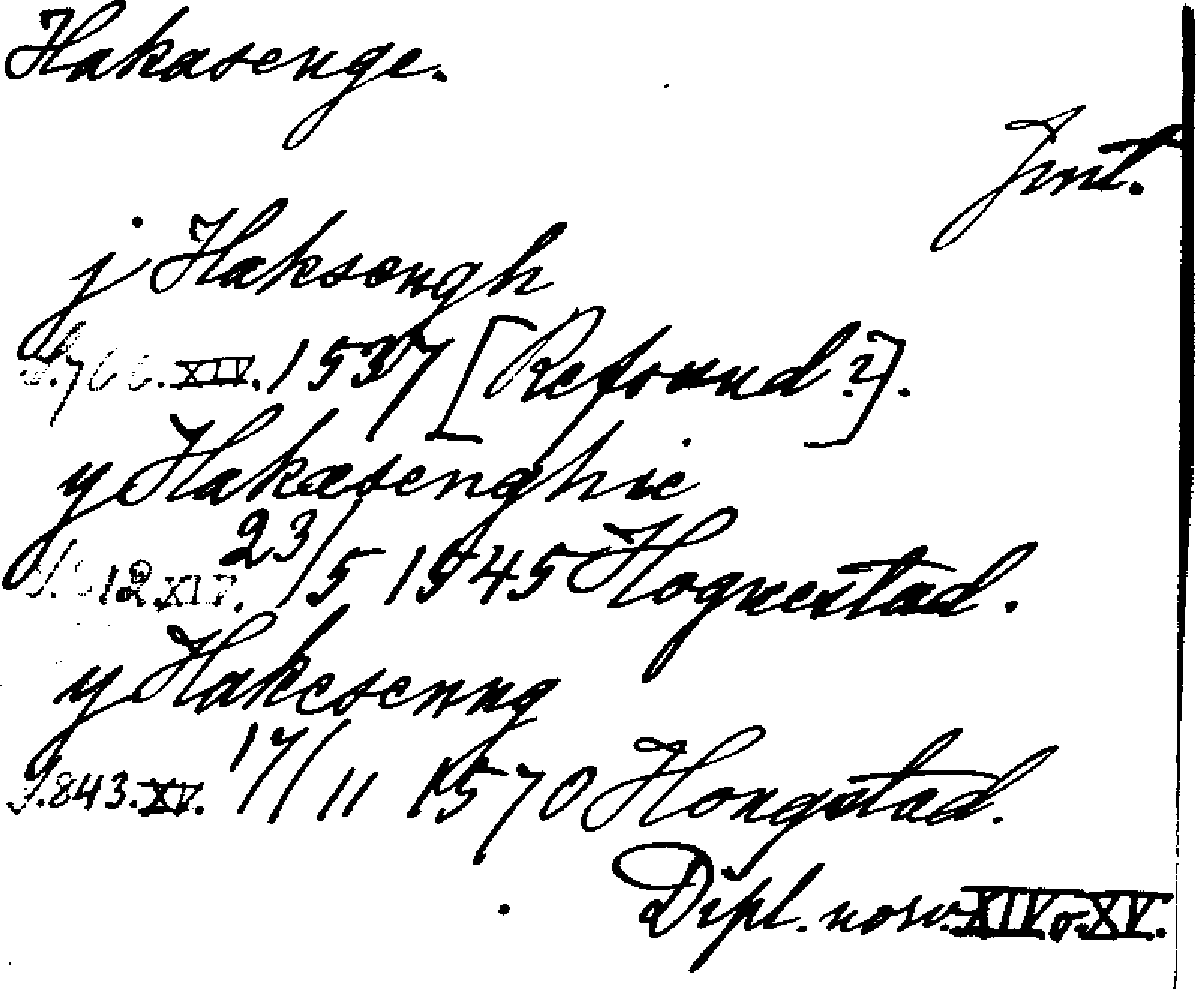 Hakasenge.
Jmt.
j Haksengh
S. 766. XIV. 1537 [Refsund?].
y Hakasenghie
XIV. 23/5 1545 Hognestad.
y Hakesenng
S. 843. XV. 17/11 1570 Hongstad.
Dipl. norv. XIV o. XV.